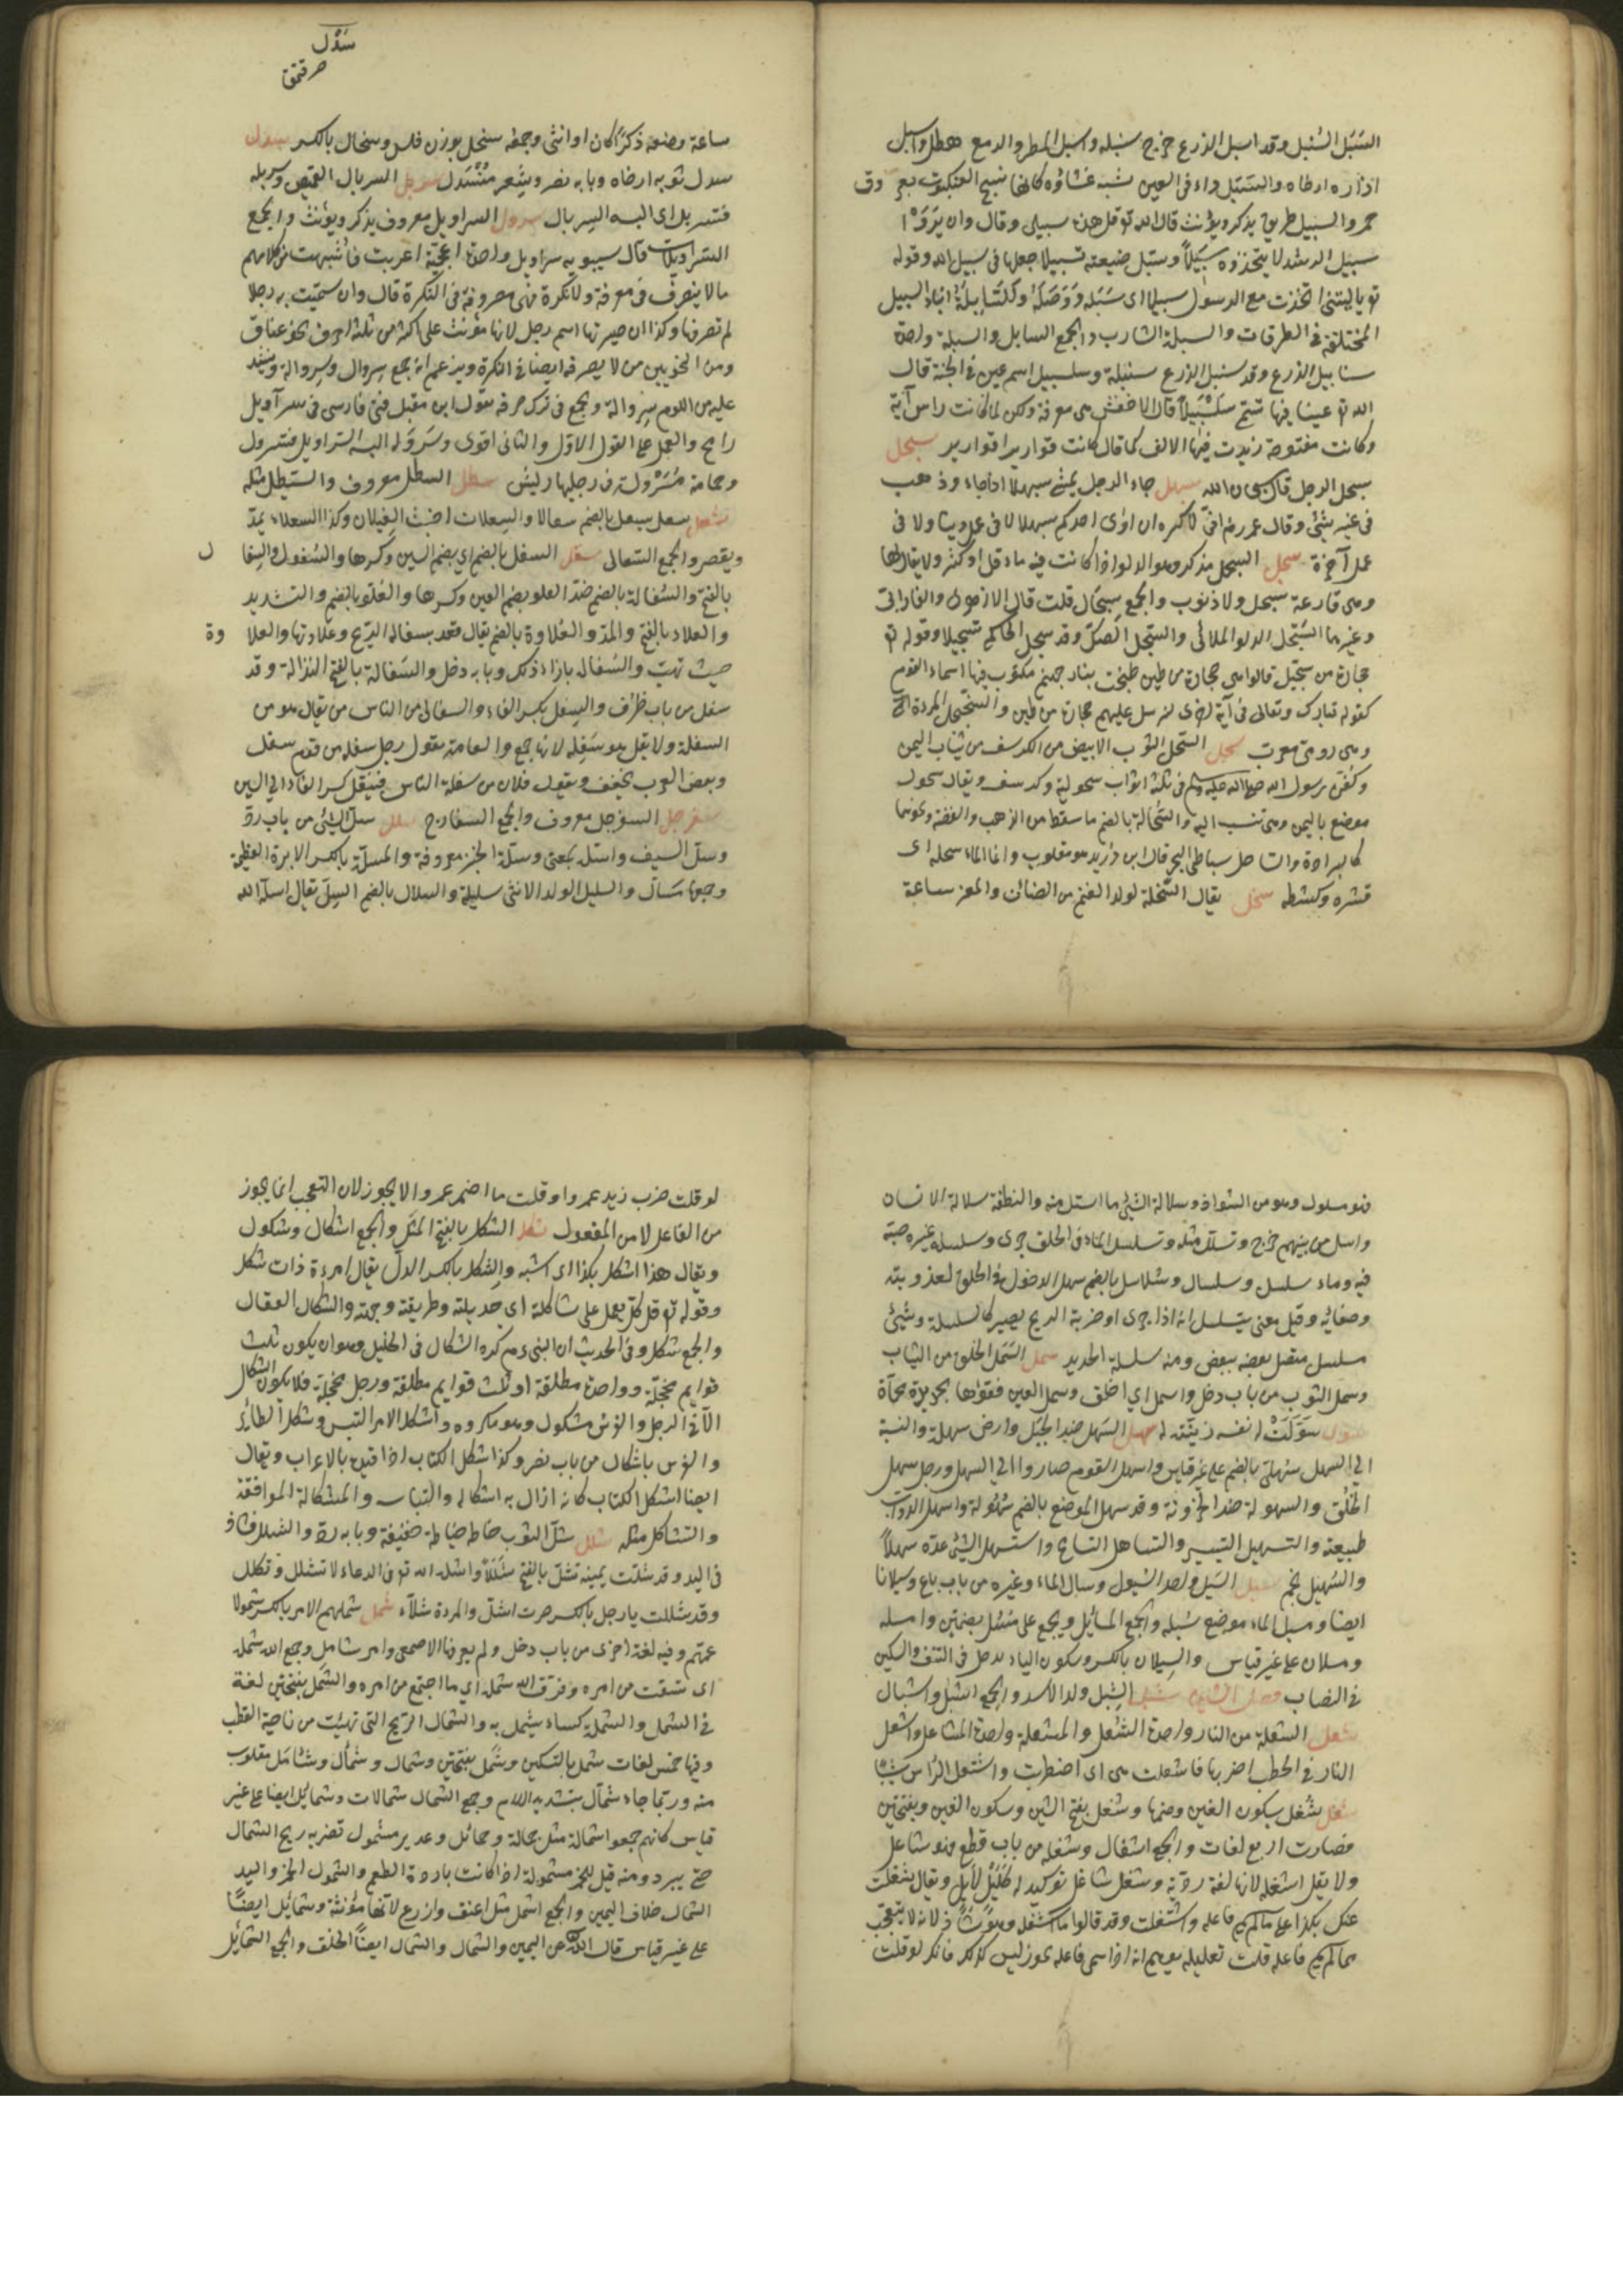 السَبَل السُنبل وقد اسبل الزرع خرج سنبله واسبل المطر والدمع هطل واسبل
ازاره ارخاه والسَبَل داء فى العين شبه غشاوة كانها نسج العنكبوت بعروق
حمر والسبيل طريق يذكر ويؤنث قال الله تع قل هذه سبيلى وقال وان يَرَوْا
سبيل الرشد لا يتخذوه سَبِيلاً وسَبّل ضيعته تسبيلا جعلها فى سبيل الله وقوله
تع يا ليتنى اتخذت مع الرسول سبيلا اى سَبَبًا وَوَصْلَةً والسَابِلَةُ ابناء السبيل
المختلفة فى الطرقات والسبلة الشارب والجمع السبال والسنبلة واحدة
سنابل الزرع وقد سنبل الزرع سنبلة وسلسبيل اسم عين فى الجنة قال
الله تع عينا فيها تسمى سَلْسَبِيلاً قال الاخفش هى معرفة ولكن لما كانت راس آية
وكانت مفتوحة زيدت فيها الالف كما قال كانت قواريرا قوارير سبحل
سبحل الرجل قال سبحان الله سبهل جاء الرجل يمشى سبهللا اذا جاء وذهب
فى غير شئ وقال عمر رض انى لاكره ان ارى احدكم سبهللا لا فى عمل دنيا ولا فى
عمل آخرة سجل السجل مذكر وهو الدلو اذا كانت فيه ماء قل او كثر ولا يقال لها
وهى فارغة سجل ولا ذنوب والجمع سجال قلت قال الازهرى والفارابى
وغيرهما السَجل الدلو الملائى والسجل الصكّ وقد سجل الحاكم تسجيلا وقوله تع
حجارة من سجّيل قالوا هى حجارة من طين طبخت بنار جهنم مكتوب فيها اسماء القوم
كقوله تبارك وتعالى فى آية اخرى لنرسل عليهم حجارة من طين والسجنجل المرآة
وهى رومىّ معرب سحل السَحل الثوب الابيض من الكرسف من ثياب اليمن
وكفن رسول الله صلى الله عليه وسلم فى ثلثة اثواب سحولية كرسف ويقال سحول
موضع باليمن وهى تنسب اليه والسُحالة بالضم ما سقط من الذهب والفضة ونحوهما
كالبرادة والساحل شاطئ البحر قال ابن دُريد هو مقلوب وانما الماء سحله اى
قشره وكشطه سخل يقال السَخلة لولد الغنم من الضان والمعز ساعة
سَدْل
ساعة وضعه ذكرًا كان او انثى وجمعه سخل بوزن فلس وسخال بالكسر سدل
سدل ثوبه ارخاه وبابه نصر وشعر مُنْسَدل سربل السربال القميص وسربله
فتسربل اى البسه السربال سرول السراويل معروف يذكر ويؤنث والجمع
السراويلات قال سيبويه سراويل واحدة اعجمية اعربت فاشبهت من كلامهم
ما لا ينصرف فى معرفة ولا نكرة فهى مصروفة فى النكرة قال وان سمّيت به رجلا
لم تصرفها وكذا ان صيرتها اسم رجل لانها مؤنث على اكثر من ثلثة احرف نحو عناق
ومن النحويين من لا يصرفه ايضا فى النكرة ويزعم انه جمع سِروال وسِروالة وينشد
عليه من اللوم سِروالة ويحتج فى ترك صرفه بقول ابن مقبل فتى فارسى فى سراويل
رامح والعمل على القول الاوّل والثانى اقوى وسَرْوَلَه البسه السراويل فتسرول
وحمامة مُسَرْوَلة فى رجليها ريش سطل السطل معروف والسيطل مثله
سعل سعل يسعل بالضم سعالا والسعلاة اخبث الغيلان وكذا السعلاء يمدّ
ويقصر والجمع السَعالى سفل السفل بالضم اى بضم السين وكسرها والسُفول والسِفال
بالفتح والسُفالة بالضم ضدّ العلو بضم العين وكسرها والعُلو بالضم والتشديد
والعلاء بالفتح والمد والعُلاوة بالضم يقال قعد بسفالة الريح وعُلاوتها والعلاوة
حيث تهبّ والسُفالة بازاء ذلك وبابه دخل والسَفالة بالفتح النذالة وقد
سفل من باب ظرُف والسِفلة بكسر الفاء السقاط من الناس يقال هو من
السفلة ولا يقل هو سَفِلة لانها جمع والعامة تقول رجل سفلة من قوم سفل
وبعض العرب يخفف ويقول فلان من سفلة الناس فينقل كسر الفاء الى السين
سفرجل السفرجل معروف والجمع السفارج سلل سلّ الشئ من باب ردّ
وسلّ السيف واستله بمعنى وسلّة الخبز معروفة والمسلّة بالكسر الابرة العظيمة
وجمعها مسالّ والسليل الولد والانثى سليلة والسلال بالضم السِلّ يقال اسلّه الله
فهو مسلول وهو من الشواذ وسلالة الشئ ما استل منه والنطفة سلالة الانسان
وانسل من بينهم خرج وتسلل مثله وتسلسل الماء فى الحلق جرى وسلسله غيره صبّه
فيه وماء سلسل وسلسال وسُلاسل بالضم سهل الدخول فى الحلق لعذوبته
وصفائه وقيل معنى يتسلسل انه اذا جرى او ضربته الريح يصير كالسلسلة وشئ
مسلسل متصل بعضه ببعض ومنه سلسلة الحديد سمل السَمَل الخلق من الثياب
وسمل الثوب من باب دخل واسمل اى اخلق وسمل العين فقؤها بحديدة محماة
سول سَوّلَتْ له نفسه زيّنته له سهل السَهل ضد الجبَل وارض سهلة والنسبة
الى السهل سُهلىّ بالضم على غير قياس واسهل القوم صاروا الى السهل ورجل سهل
الخُلُق والسهولة ضد الحزونة وقد سهل الموضع بالضم سُهُولة واسهل الدواء
طبيعته والتسهيل التيسير والتساهل التسامح واستسهل الشئ عدّه سهلاً
والسُهيل نجم سيل السَيل واحد السُيول وسال الماء وغيره من باب باع وسيلانا
ايضا ومسيل الماء موضع سَيله والجمع المسايل ويجمع على مُسُل بضمتين وامسلة
ومسلان على غير قياس والسِيلان بالكسر وسكون الياء ما يدخل فى السيف والسكين
فى النصاب فصل الشين شبل الشِبل ولد الاسد والجمع اشبُل واشبال
شعل الشعلة من النار واحدة الشُعل والمشعلة واحدة المشاعل واشعل
النار فى الحطب اضرمها فاشتعلت هى اى اضطرمت واشتعل الرأس شيبا
شغل شُغل بسكون الغين وضمها وشَغل بفتح الشين وسكون الغين وبفتحتين
فصارت اربع لغات والجمع اشغال وشغله من باب قطع فهو شاغل
ولا يقل اشغله لانها لغة رديّة وشغل شاغل توكيد له كليل لايل ويقال شغلت
عنك بكذا على ما لم يسم فاعله واشتغلت وقد قالوا ما اشغله وهو شاذ لانه لا يتعجب
مما لم يسم فاعله قلت تعليله يوهم انه اذا سمى فاعله يجوز وليس كذلك فانك لو قلت
لو قلت ضرب زيد عمروا وقلت ما اضرب عمروا لا يجوز لان التعجب انما يجوز
من الفاعل لا من المفعول شكل الشكل بالفتح المثل والجمع اشكال وشكول
ويقال هذا اشكل بكذا اى اشبه والشِكل بالكسر الدلّ يقال امرءة ذات شكل
وقوله تع قل كلّ يعمل على شاكلته اى جديلته وطريقته وجهته والشِكال العقال
والجمع شكل وفى الحديث ان النبى ءم كره الشكال فى الخيل وهو ان يكون ثلث
قوايم محجّلة وواحدة مطلقة او ثلث قوايم مطلقة ورجل محجلة فلا يكون الشكال
الّا فى الرجل والفرس مشكول وهو مكروه واشكل الامر التبس وشكل الطائر
والفرس بالشكال من باب نصر وكذا اشكل الكتاب اذا قيده بالاعراب ويقال
ايضا اشكل الكتاب كانه ازال به اشكاله والتباسه والمشاكلة الموافقة
والتشاكل مثله شلل شلّ الثوب خاطه خياطة خفيفة وبابه ردّ والشلل فساد
فى اليد وقد شلّت يمينه تشلّ بالفتح شَلَلاً واشلّه الله تع وفى الدعاء لا تشلل وتكلل
وقد شللت يا رجل بالكسر صرت اشلّ والمرءة شلّاء شمل شملهم الامر بالكسر شمولا
عمّهم وفيه لغة اخرى من باب دخل ولم يعرفها الاصمعى وامر شامل وجمع الله شمله
اى تشتت من امره وفرّق الله شمله اى ما اجتمع من امره والشَمَل بفتحتين لغة
فى الشمل والشملة كساء يشتمل به والشمال الريح التى تهبّت من ناحية القطب
وفيها خمس لغات شمل بالتسكين وشَمَل بفتحتين وشمال وشمأل وشأمَل مقلوب
منه وربّما جاء شمألّ بتشديد اللام وجمع الشمال شمالات وشمائل ايضا على غير
قياس كانهم جمعوا شمالة مثل حمالة وحمائل وغدير مشمول تضربه ريح الشمال
حتى يبرد ومنه قيل للخمر مشمولة اذا كانت باردة الطعم والشمول الخمر واليد
الشمال خلاف اليمين والجمع اشمل مثل اعنق واذرع لانها مؤنثة وشمائل ايضاً
على غير قياس قال الله تع عن اليمين والشمال والشمال ايضاً الخلق والجمع الشمائل